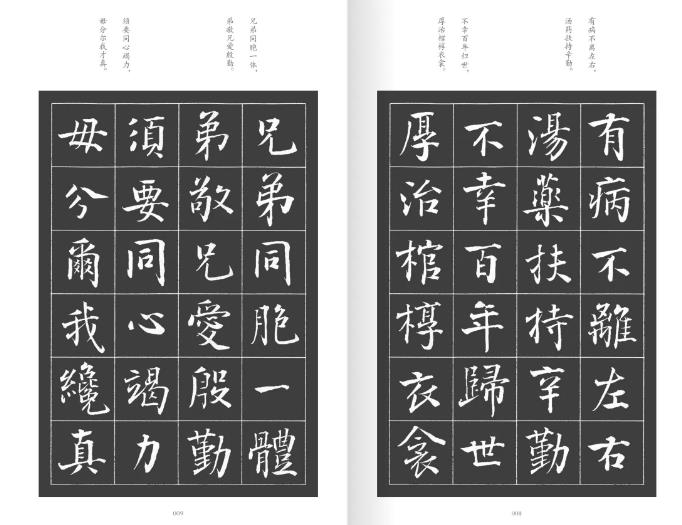 有病不离左右，
汤药扶持辛勤。
不幸百年归世，
厚治棺椁衣衾。
有病不離左右
湯藥扶持辛勤
不幸百年歸世
厚治棺椁衣衾
008
兄弟同胞一体，
弟敬兄爱殷勤。
须要同心竭力，
毋分尔我才真。
兄弟同胞一體
弟敬兄愛殷勤
須要同心竭力
毋分爾我纔真
009